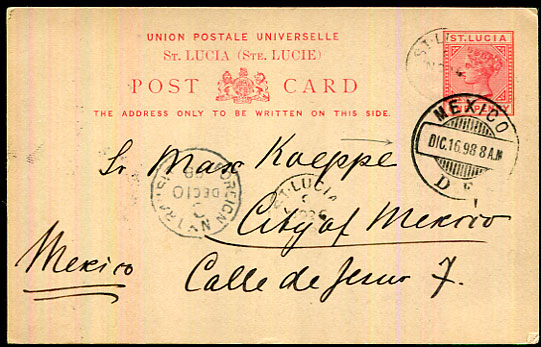 UNION POSTALE UNIVERSELLE
ST. LUCIA (STE. LUCIE)
POST CARD
THE ADDRESS ONLY TO BE WRITTEN ON THIS SIDE.
ST. LUCIA
PENNY
ST. LUCIA
MEXICO
DIC.16.98 8 AM
D F
Sr Max Koeppe
FOREIGN
DEC 10
98
N.Y. TRANSIT
ST. LUCIA
City of Mexico
Mexico
Calle de Jesus 7.